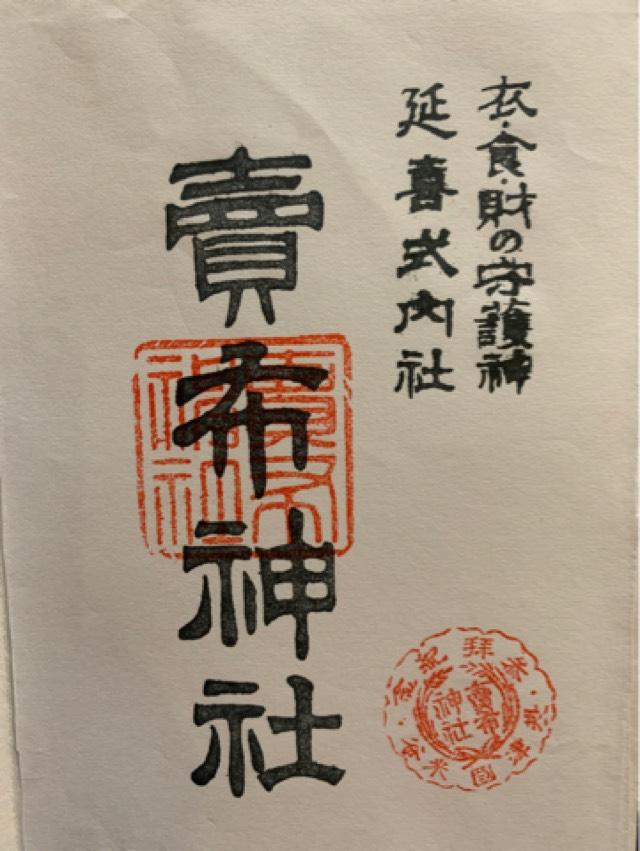 衣・食・財の守護神
延喜式内社
賣布神社
賣布神社
賣布
神社
参拝記念